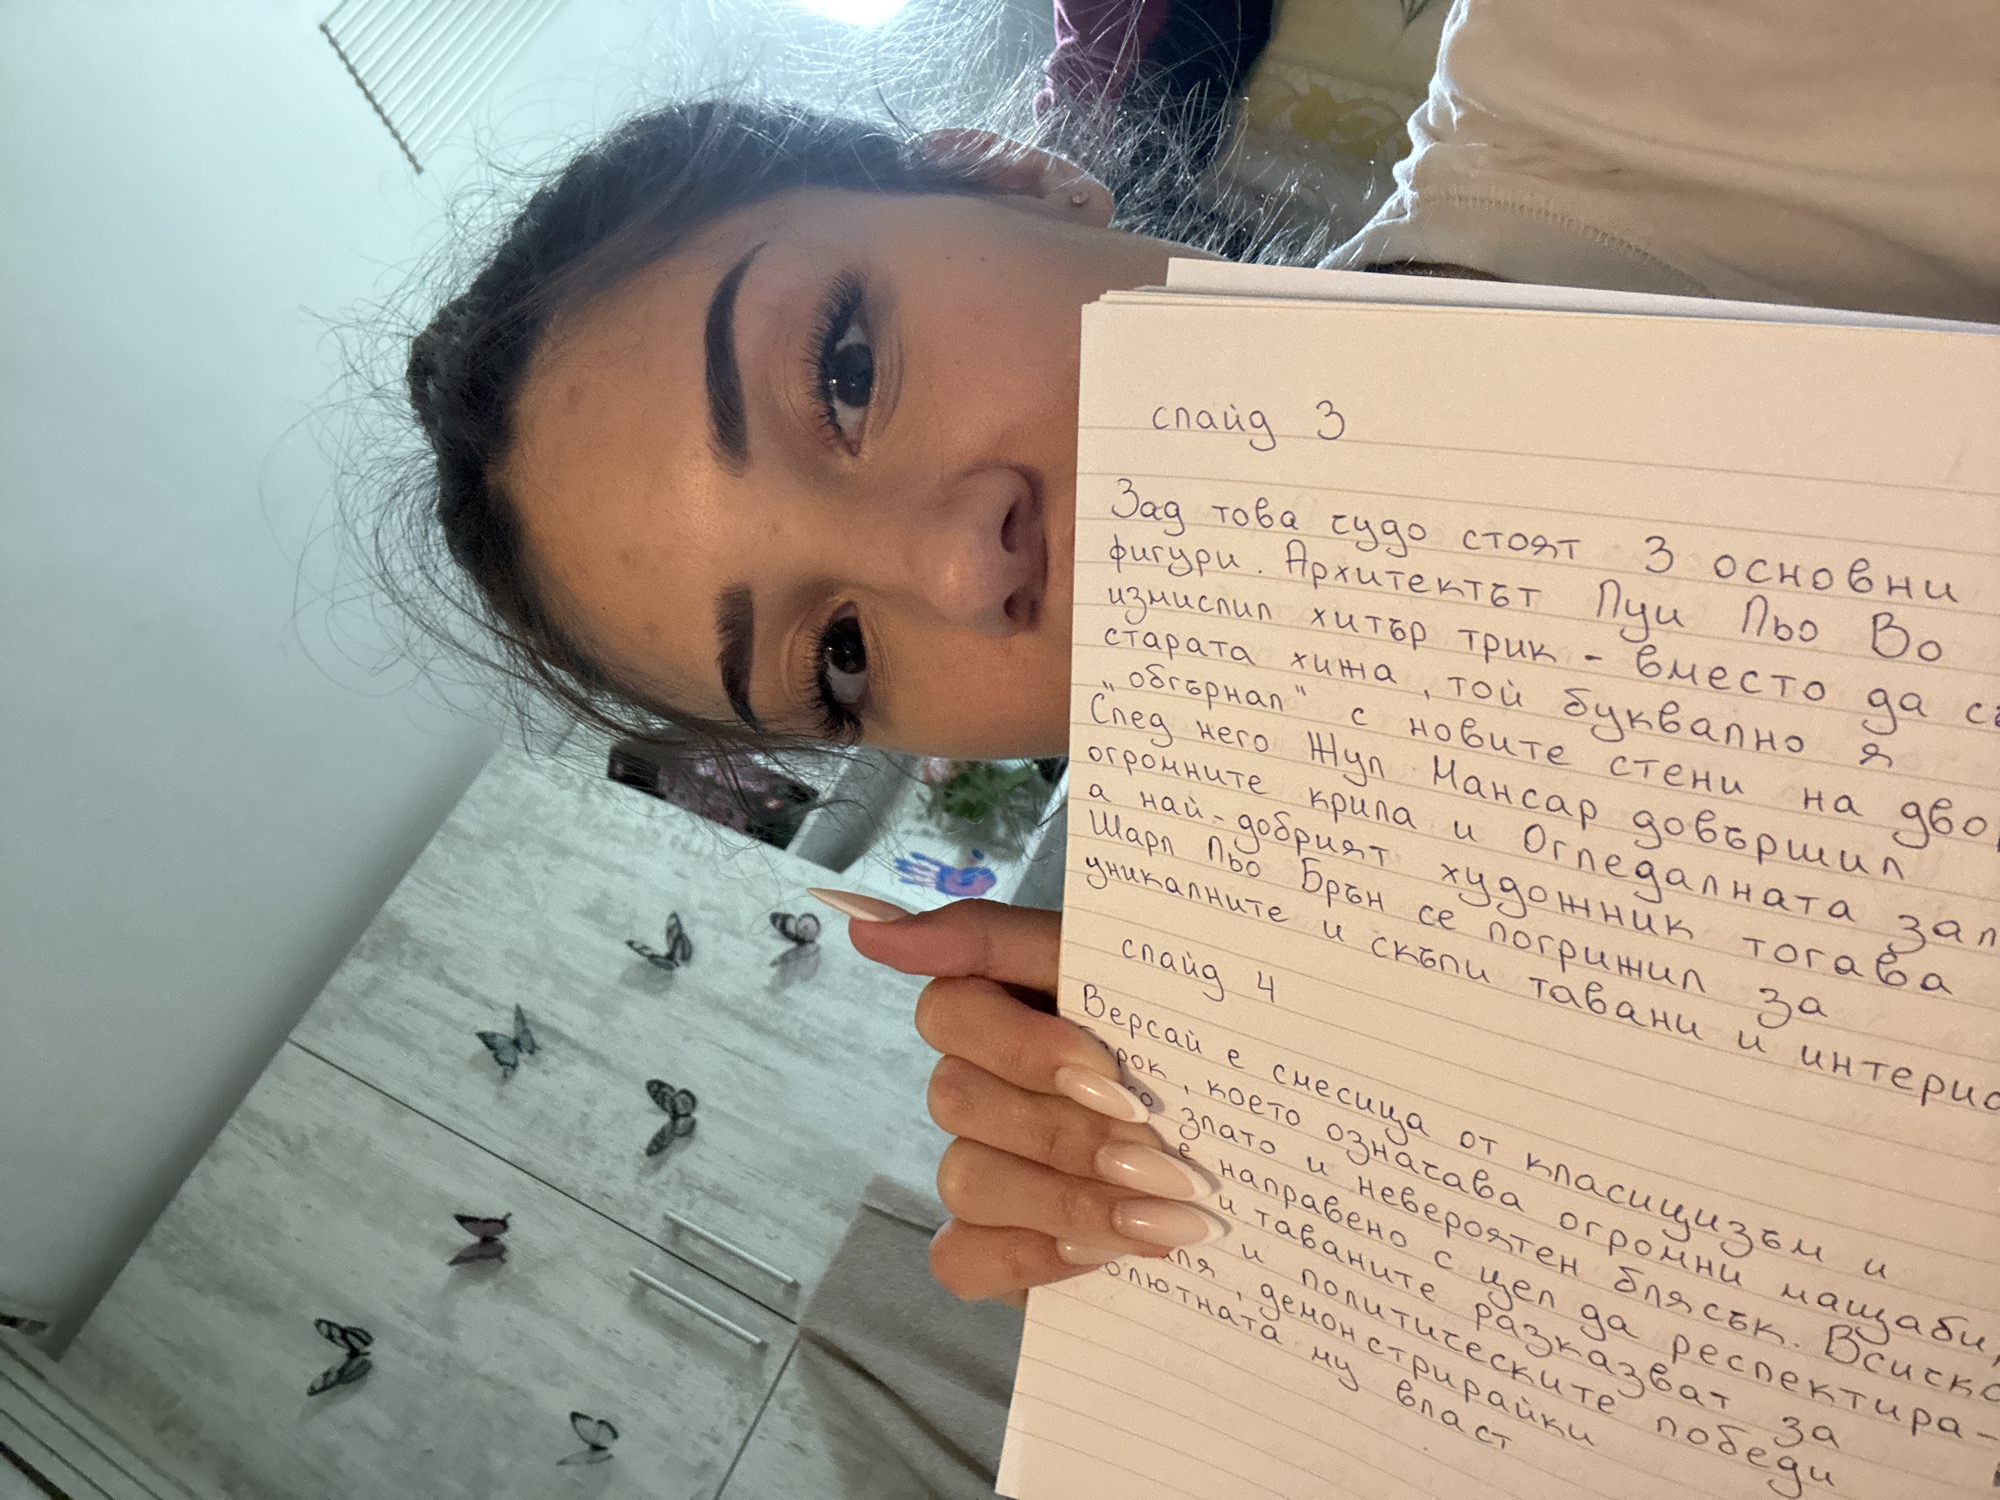 слайд 3
Зад това чудо стоят 3 основни
фигури. Архитектът Луи Льо Во
измислил хитър трик - вместо да
старата хижа, той буквално я
„обгърнал" с новите стени на
След него Жул Мансар довършил
огромните крила и Огледалната
а най-добрият художник тогава
Шарл Льо Брън се погрижил за
уникалните и скъпи тавани и
слайд 4
Версай е смесица от класицизъм и
, което означава огромни мащаби,
злато и невероятен блясък. Всичко
е направено с цел да респектира-
и таваните разказват за
и политическите победи
, демонстрирайки
му власт